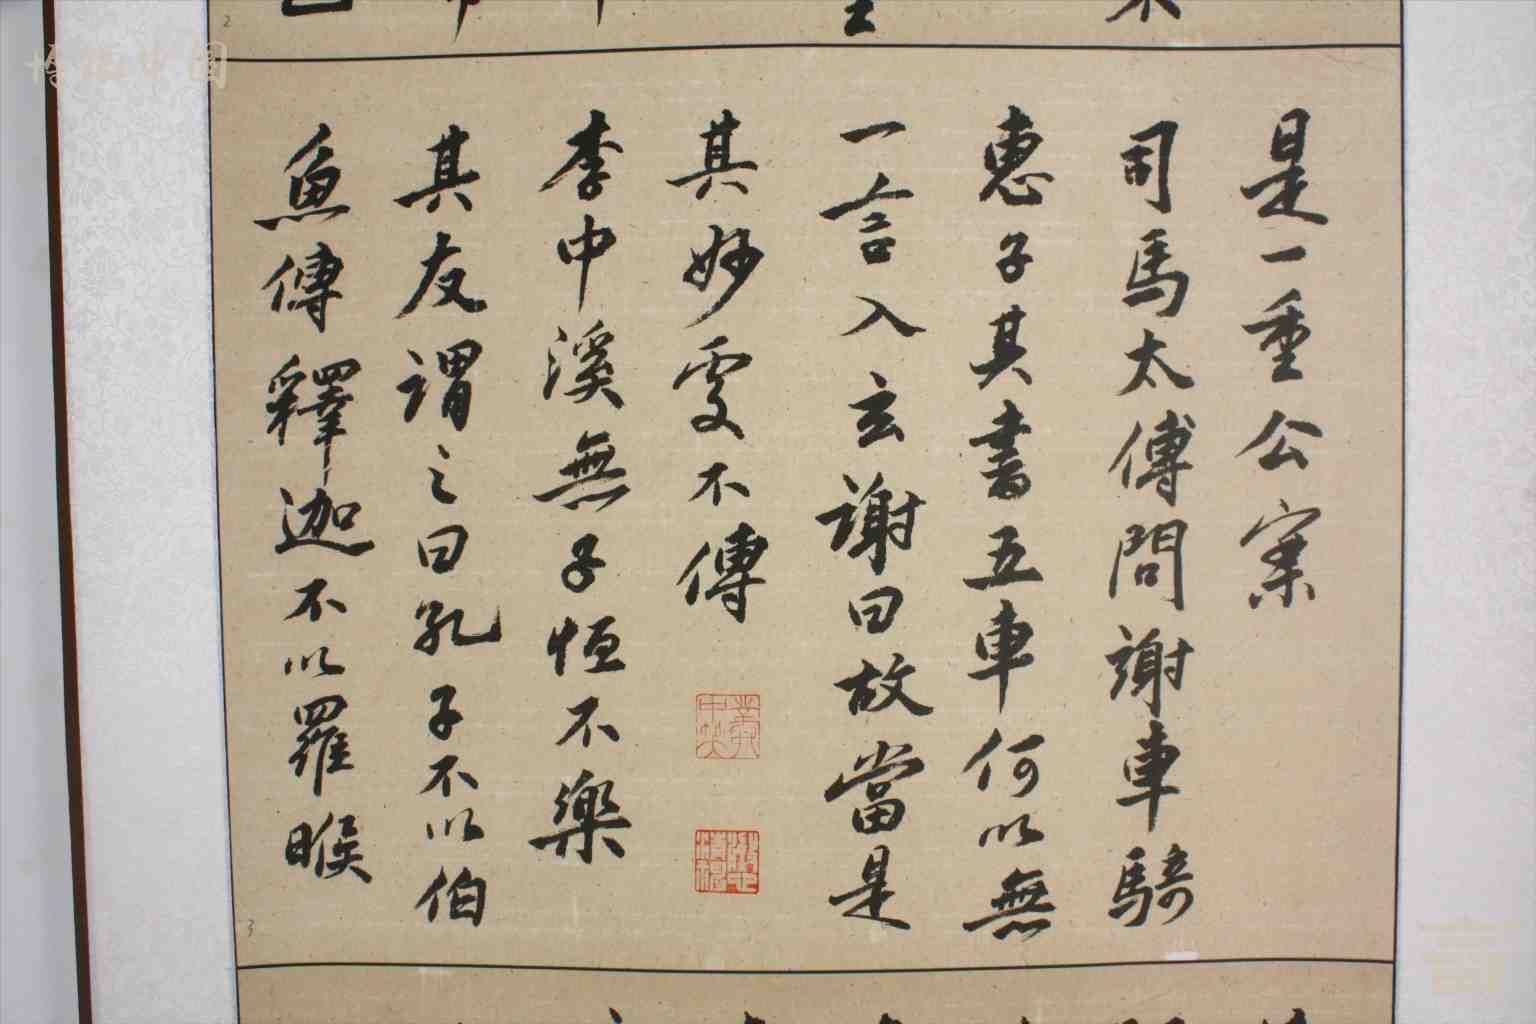 是一重公案
司馬太傅問謝車騎
惠子其書五車何以無
一言入玄謝曰故當是
其妙處不傳
李中溪無子恒不樂
其友謂之曰孔子不以伯
魚傳釋迦不以羅睺